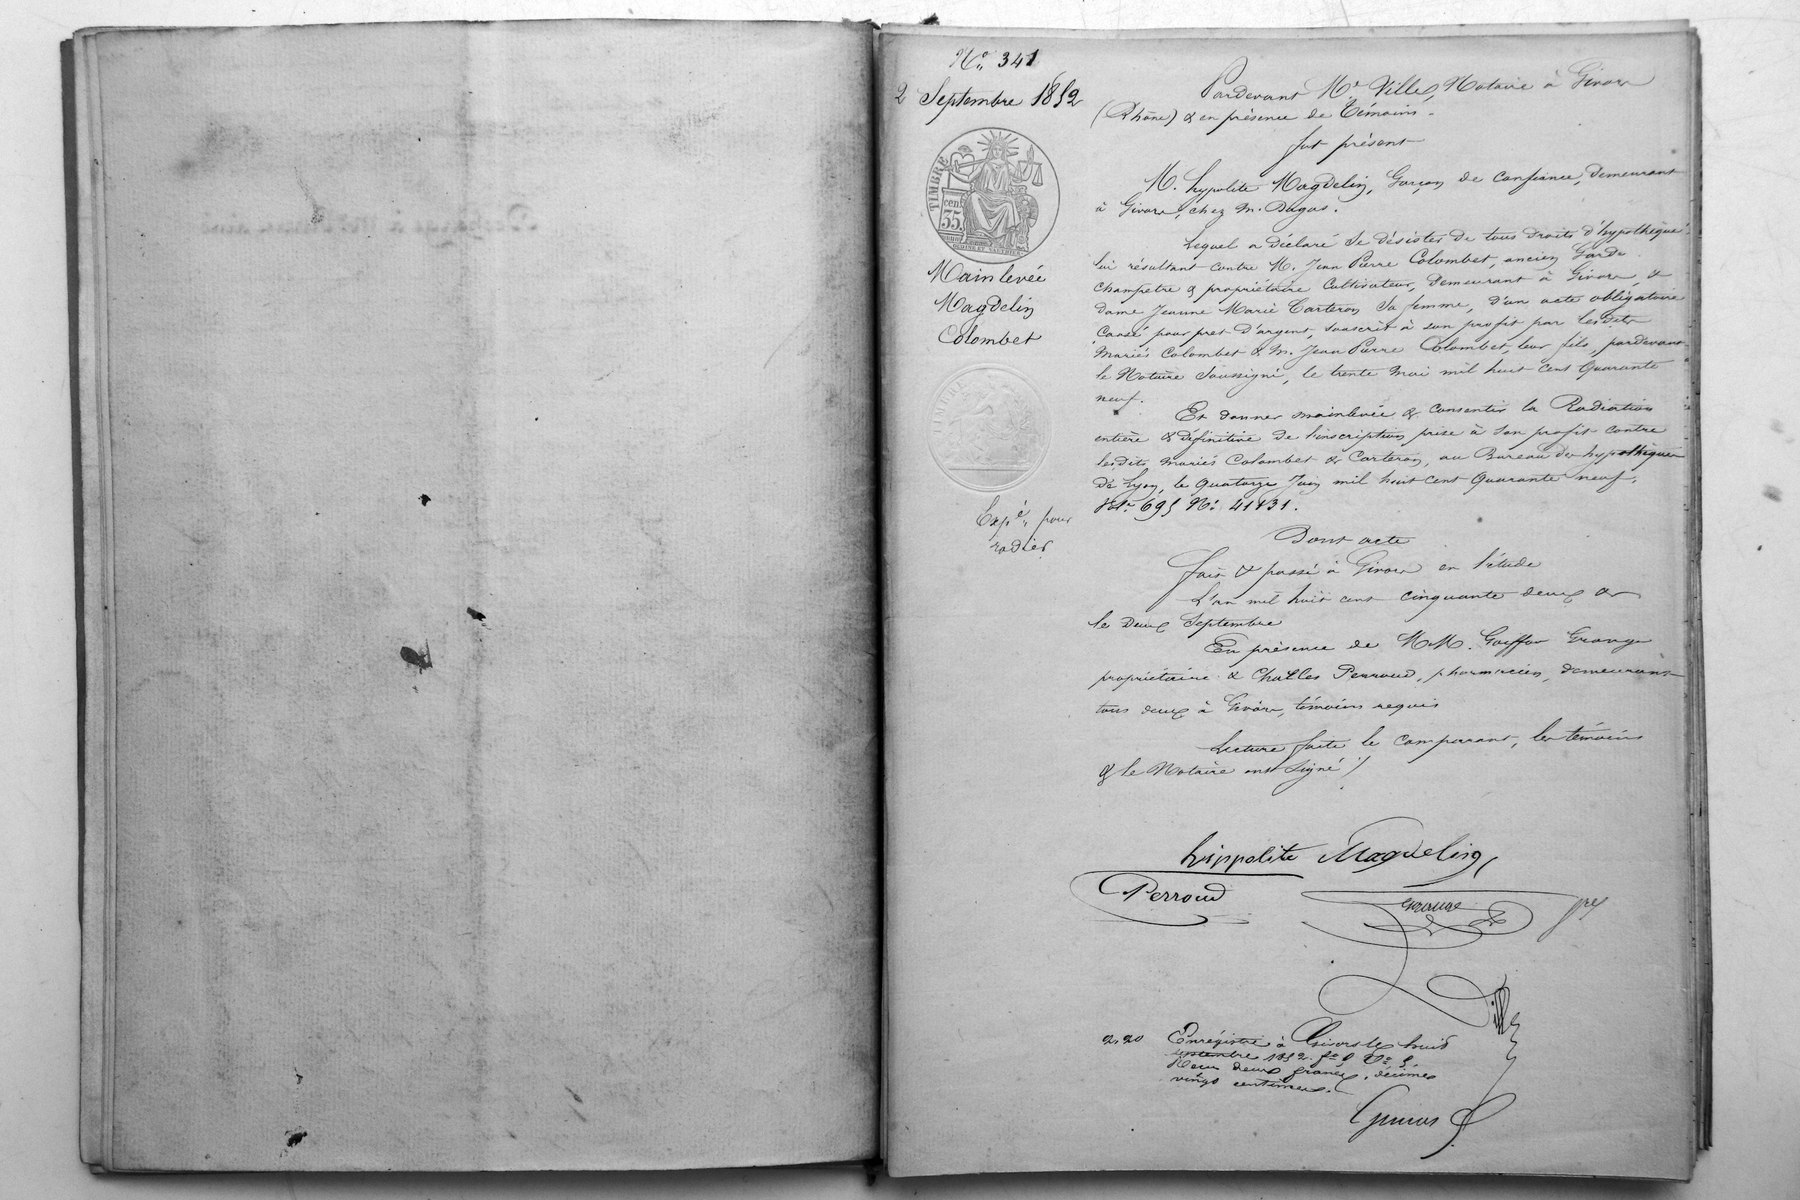 No. 341
2 Septembre 1852
TIMBRE
cen. 35.
Mainlevée
Magdelin
Colombet
TIMBRE
Expée. pour
radier
Pardevant Me. Ville, Notaire à Givors
(Rhône) & en présence de Témoins.
fut présent
M. hypolite Magdelin, Garçon de Confiance, demeurant
à Givors, chez M. Dugas.
Lequel a déclaré Se désister de tous droits d'hypothèque
lui résultant contre M. Jean Pierre Colombet, ancien Garde
Champetre & propriétaire Cultivateur, demeurant à Givors, &
dame Jeanne Marie Carteron Sa femme, d'un acte obligatoire
Causé pour pret d'argent, Souscrit à son profit par lesdits
Mariés Colombet & M. Jean Pierre Colombet, leur fils, pardevant
le Notaire Soussigné, le trente Mai mil huit cent Quarante
neuf.
Et donner mainlevée & Consentir la Radiation
entière & définitive de l'inscription prise à Son profit contre
lesdits mariés Colombet & Carteron, au Bureau des hypothèques
de Lyon, le Quatorze Juin mil huit cent Quarante neuf,
Vol. 695 No. 41131.
Dont acte
fait & passé à Givors en l'étude
L'an mil huit cent cinquante deux &
le Deux Septembre
En présence de MM. Goiffon Grange
propriétaire & Charles Perroud, pharmacien, demeurans
tous deux à Givors, témoins requis
Lecture faite le Comparant, les témoins
& le Notaire ont Signé ./
hippolite Magdelin
Perroud
Grange
Ville
2,20 Enrégistré à Givors le huit
septembre 1852. fo.
Reçu deux francs, décime
vingt centimes.